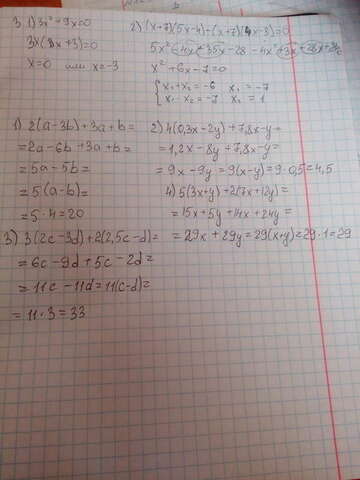 3. 1) 3x² + 9x = 0
3x(x + 3) = 0
x = 0 или x = -3
2) (x+7)(5x-4)-(x+7)(4x-3)=0
5x² - 4x + 35x - 28 - 4x² + 3x - 28x +
x² + 6x - 7 = 0
x₁ + x₂ = -6 x₁ = -7
x₁ · x₂ = -7 x₂ = 1
1) 2(a-3b)+3a+b=
= 2a - 6b + 3a + b =
= 5a - 5b =
= 5(a-b) =
= 5 · 4 = 20
2) 4(0,3x-2y)+7,8x-y=
= 1,2x - 8y + 7,8x - y =
= 9x - 9y = 9(x-y) = 9 · 0,5 = 4,5
4) 5(3x+y)+2(7x+12y)=
= 15x + 5y + 14x + 24y =
= 29x + 29y = 29(x+y) = 29 · 1 = 29
3) 3(2c-3d)+2(2,5c-d)=
= 6c - 9d + 5c - 2d =
= 11c - 11d = 11(c-d) =
= 11 · 3 = 33